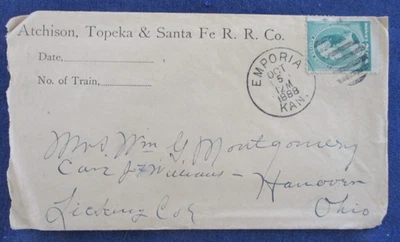 Atchison, Topeka & Santa Fe R. R. Co.
Date,
No. of Train,
EMPORIA
OCT
5
12M
1888
KAN.
Mrs Wm G Montgomery
Care J Williams - Hanover
Licking Co
Ohio